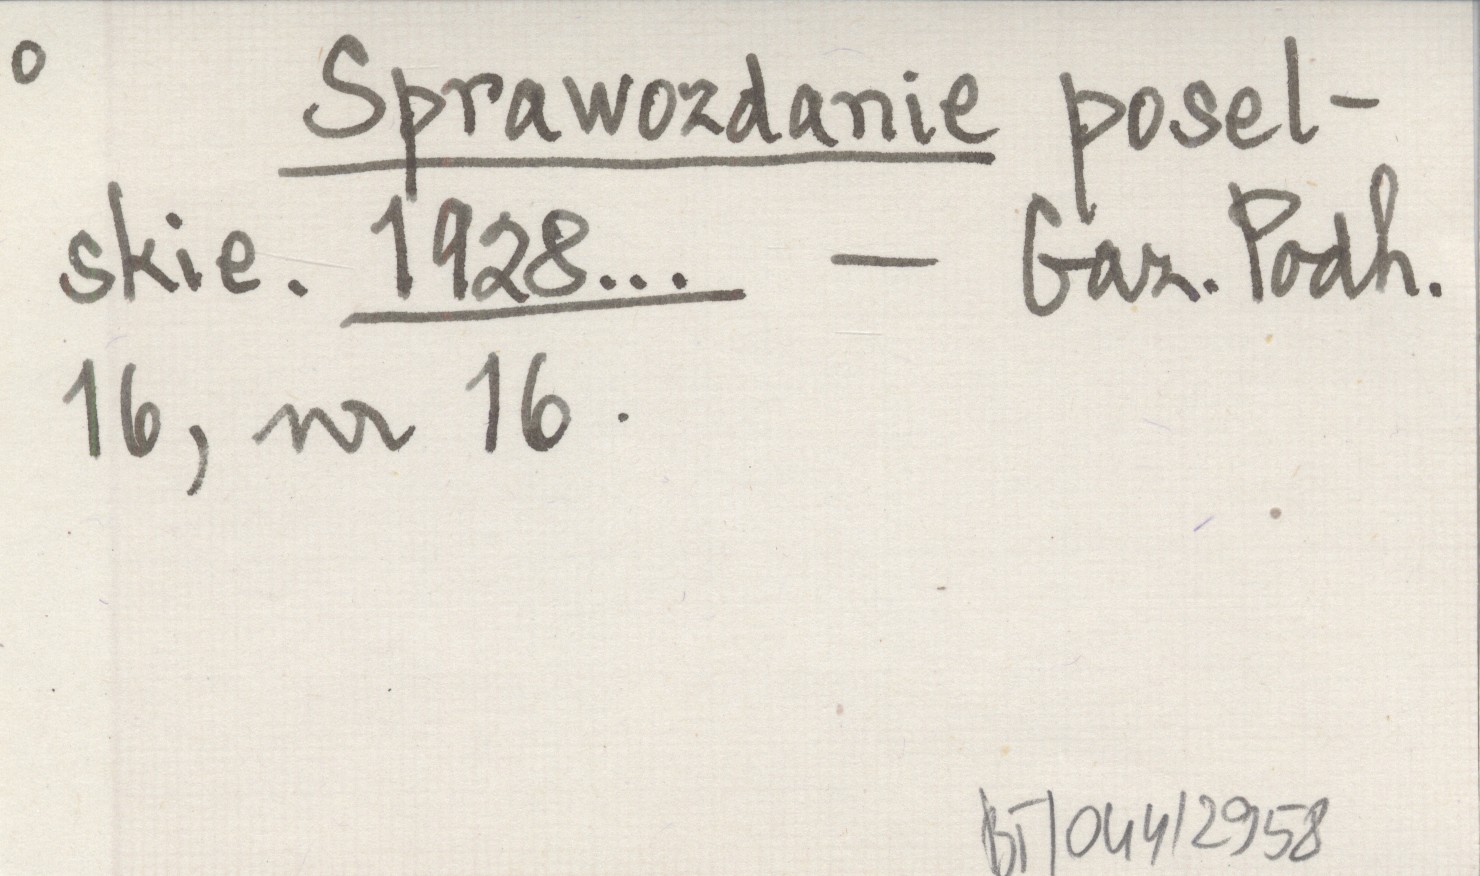 o
Sprawozdanie posel-
skie. 1928... — Gaz. Podh.
16, nr 16.
BT/044/2958